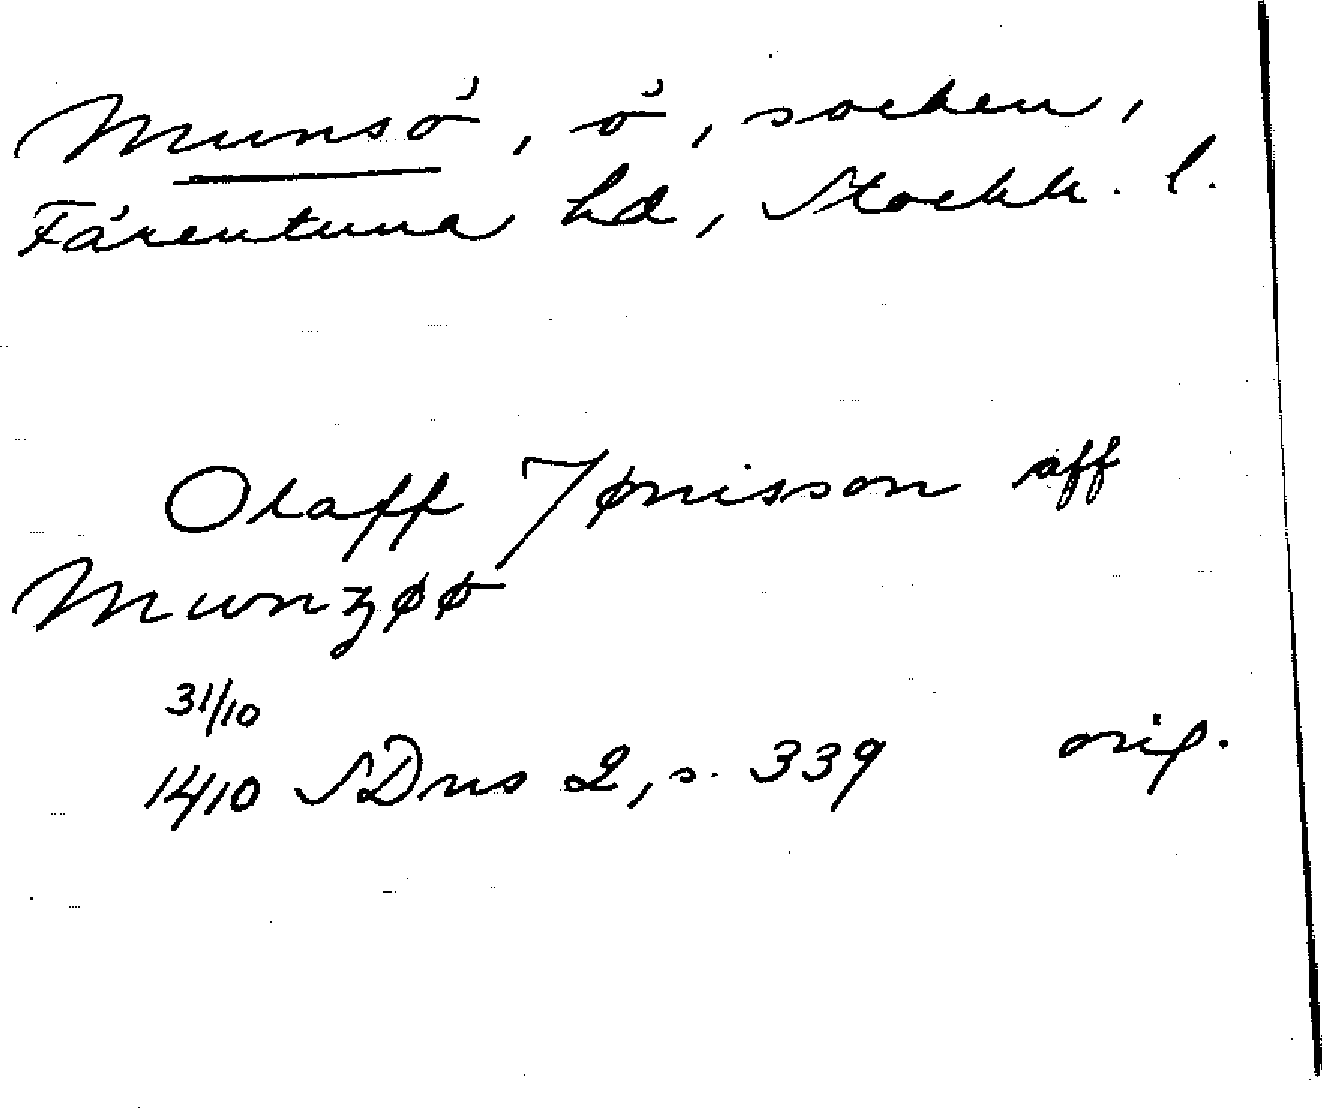 Munsö, ö, socken,
Färentuna hd, Stockh. l.
Olaff Jønisson aff
Mwnzøø
31/10
1410 SDns 2, s. 339 orig.